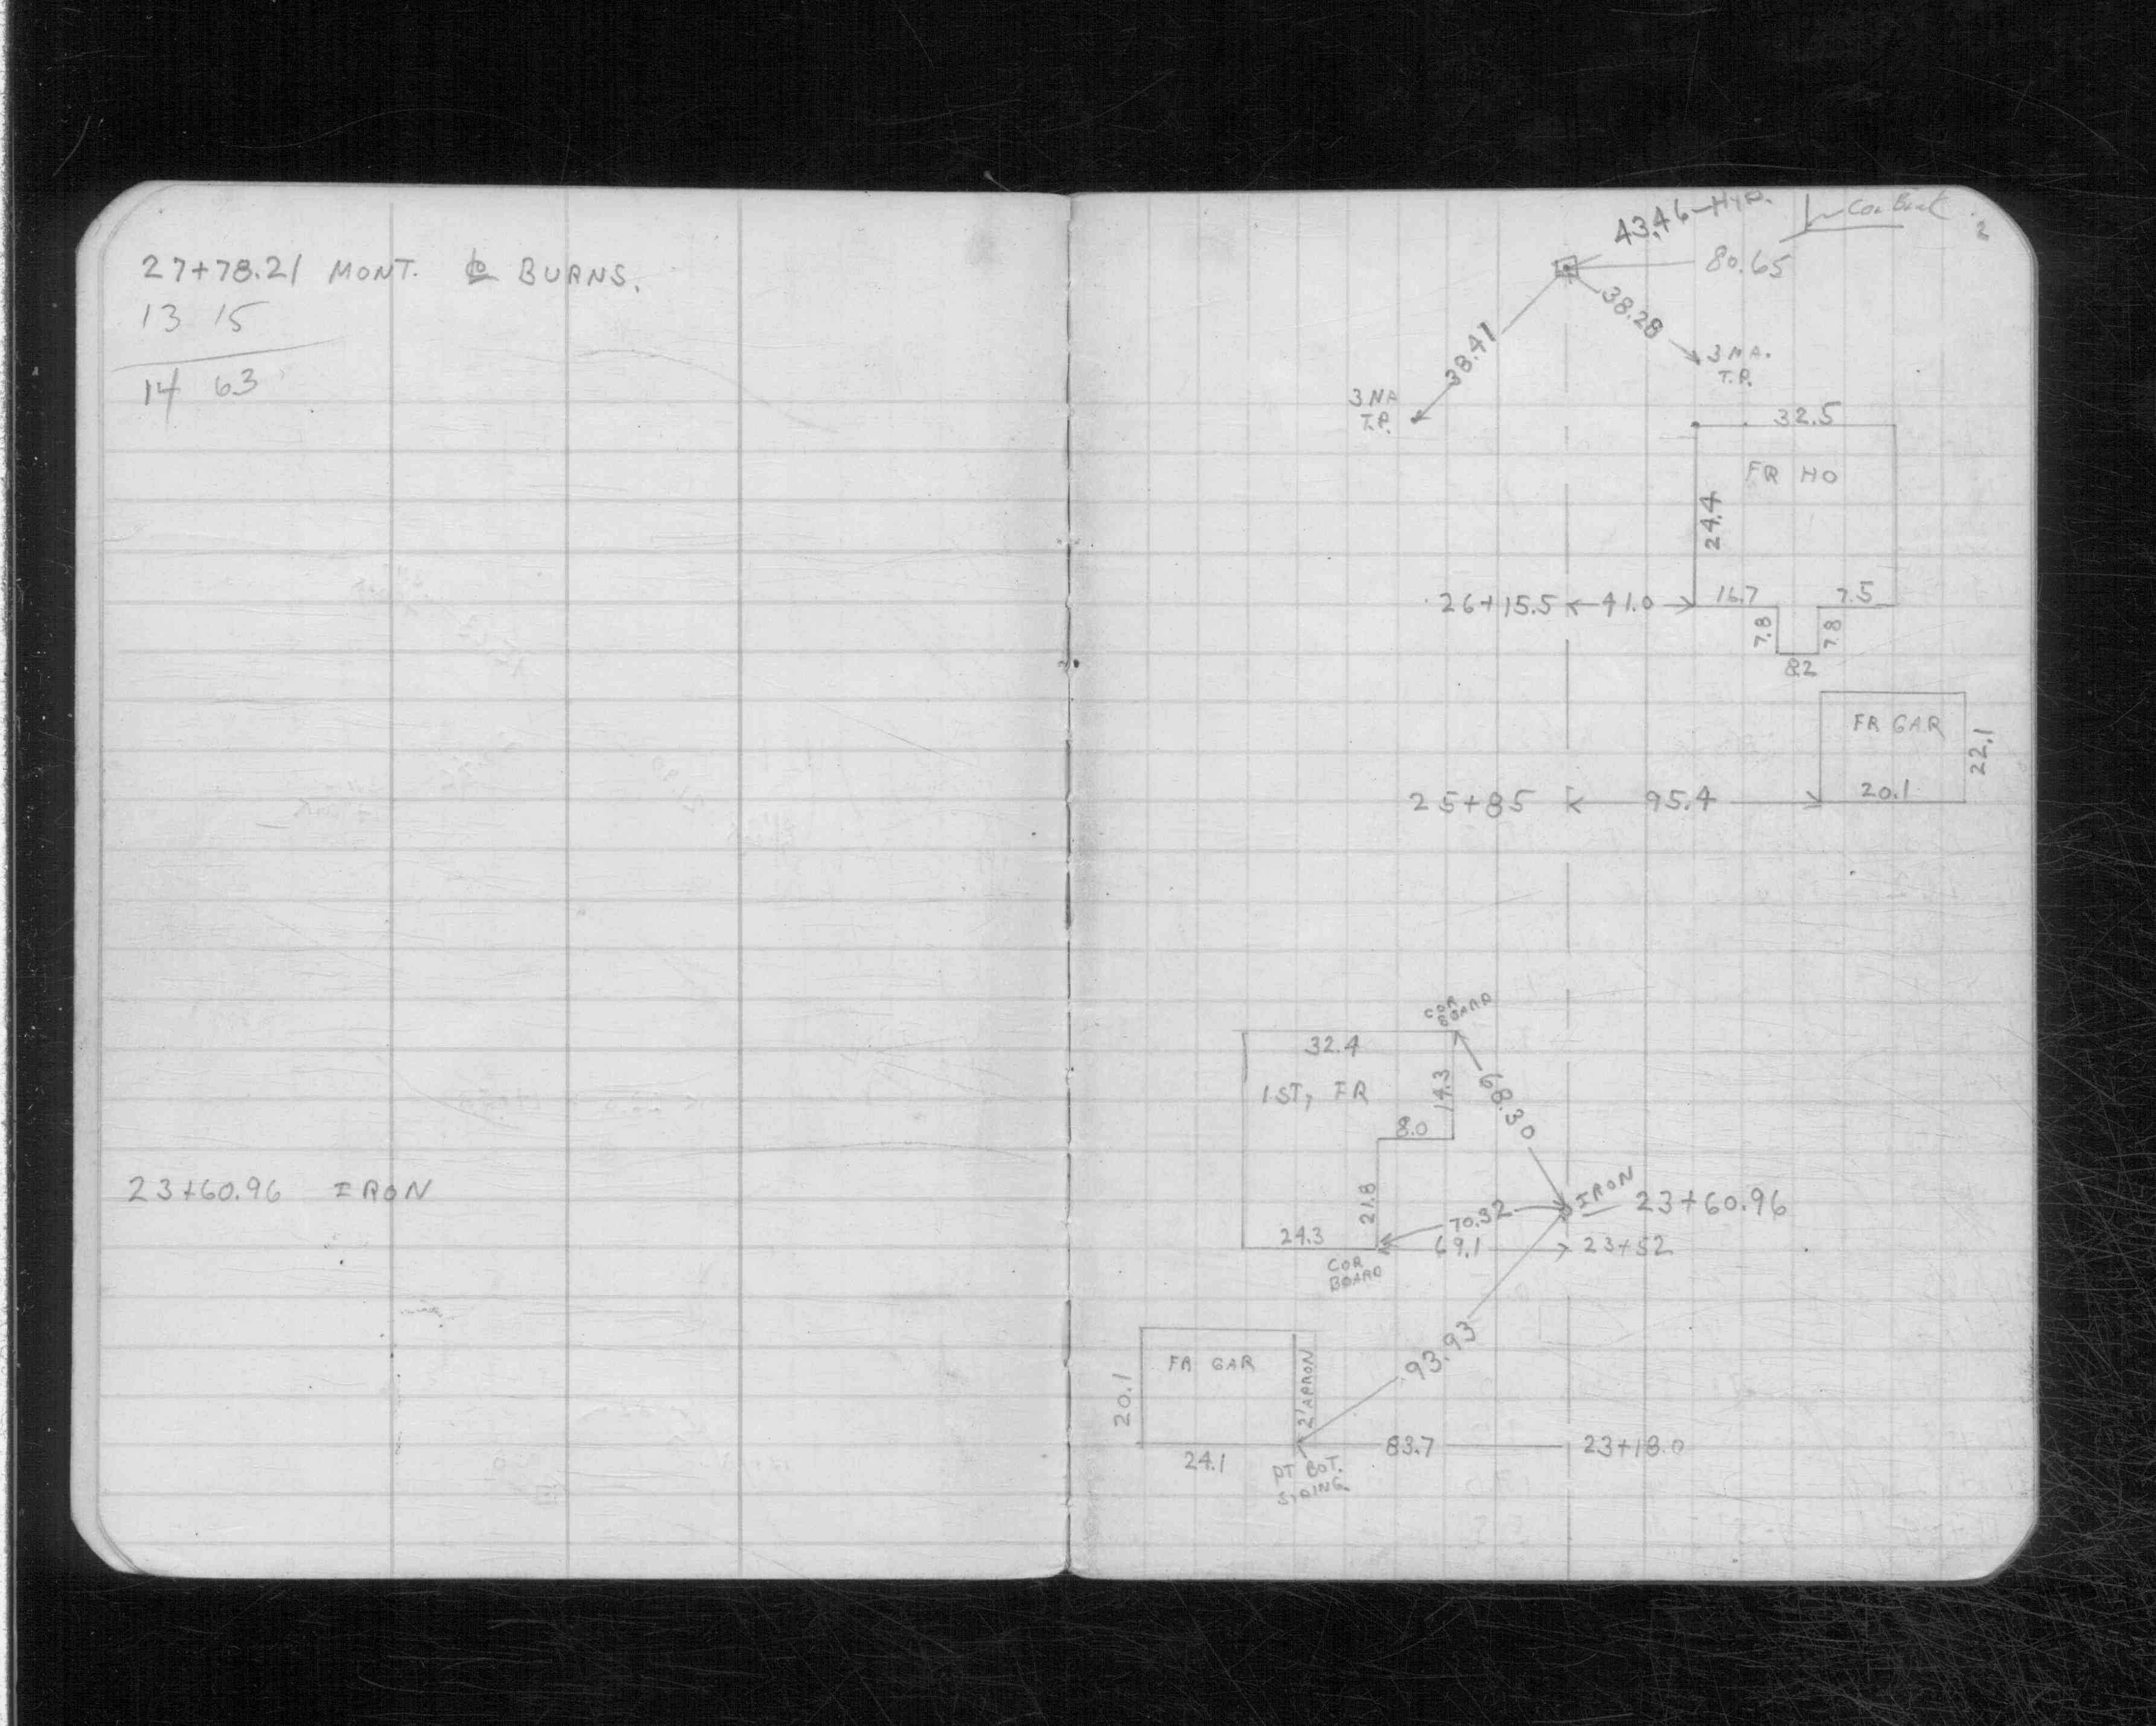 27+78.21 MONT. ℄ BURNS.
13 15
14 63
23+60.96 IRON
2
43.46-HYD.
Cor
80.65
38.28
38.47
3 NA.
T.P.
3 NA
T.P.
32.5
FR HO
24.4
26+15.5 41.0 16.7 7.5
7.8 7.8
8.2
FR GAR
22.1
25+85 95.4 20.1
COR
BOARD
32.4
1 ST, FR
14.3
68.30
8.0
21.8
IRON 23+60.96
70.32
24.3 69.1 23+52
COR
BOARD
93.93
FR GAR
2' APRON
20.1
83.7 23+18.0
24.1
PT BOT.
SIDING